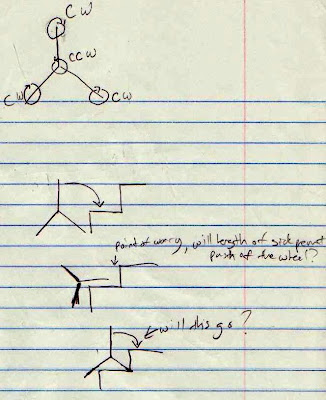 CW
CCW
CW
CW
point of worry, will length of side permit
push of the wheel?
will this go?